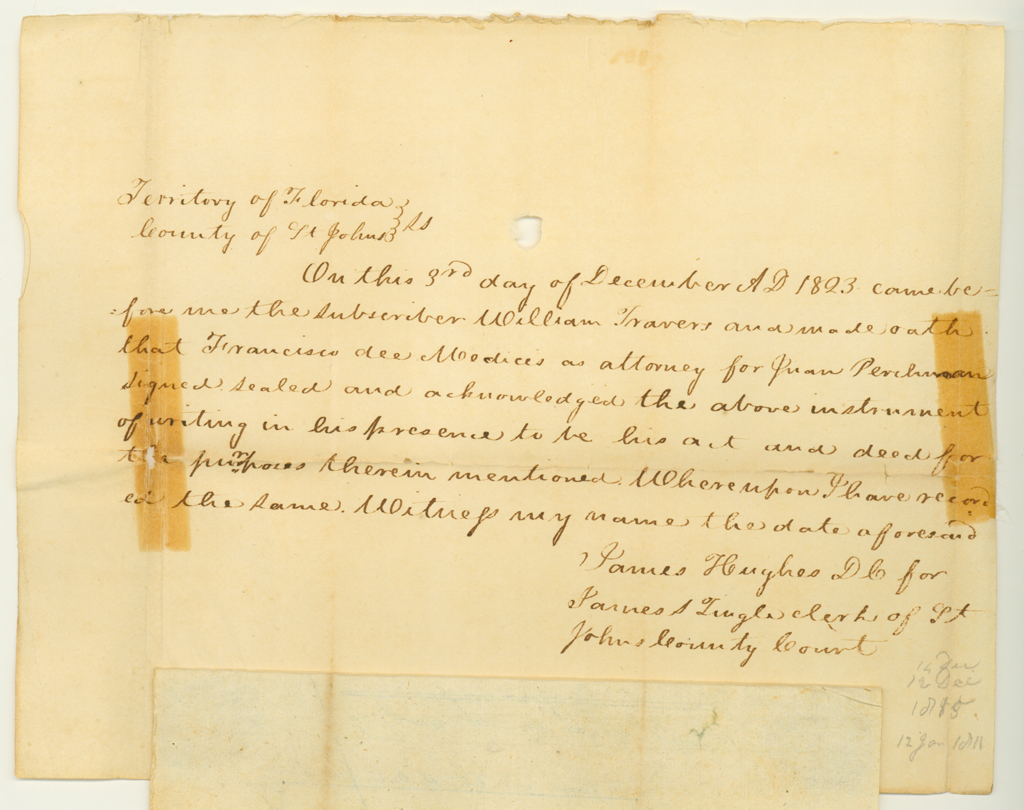 Territory of Florida
County of St Johns } ss
On this 3rd day of December A D 1823 came be=
=fore me the subscriber William Travers and made oath
that Francisco dee Medices as attorney for Juan Perchman
signed sealed and acknowledged the above instrument
of writing in his presence to be his act and deed for
the purposes therein mentioned. Whereupon I have record
ed the same. Witness my name the date aforesaid
James Hughes D C for
James S Tingle clerk of St
Johns County Court
12 Dec
1815.
12 Jan 1811